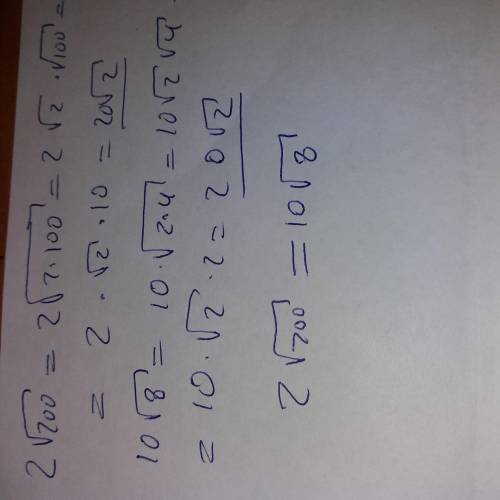 2√200 = 2√2·100 = 2√2 · √100 =
= 2 · √2 · 10 = 20√2
10√8 = 10 · √2·4 = 10√2 √4
= 10 · √2 · 2 = 20√2
2√200 = 10√8